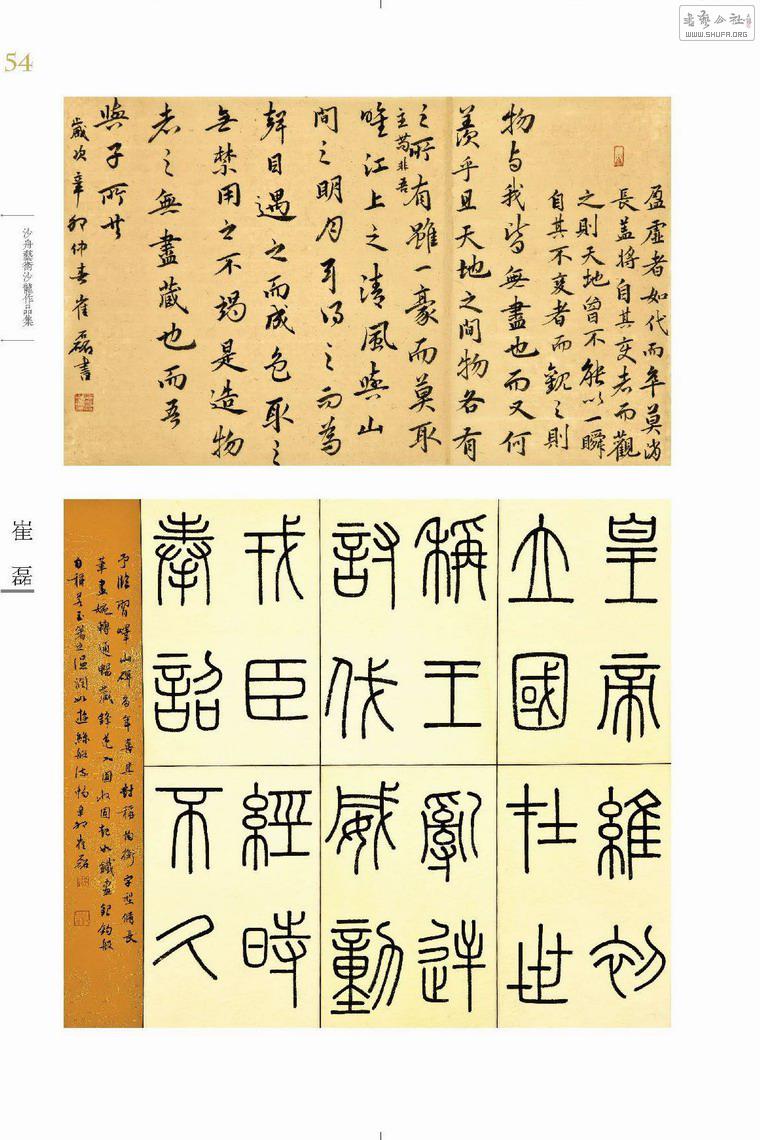 書藝公社
WWW.SHUFA.ORG
54
盈虛者如代而卒莫消
長盖將自其变者而觀
之則天地曾不能以一瞬
自其不变者而觀之則
物与我皆無盡也而又何
羨乎且天地之間物各有
主苟非吾
之所有雖一豪而莫取
唯江上之清風與山
間之明月耳得之而為
聲目遇之而成色取之
無禁用之不竭是造物
者之無盡藏也而吾
與子所共
歲次辛卯仲春崔磊書
沙舟藝術沙龍作品集
崔磊
皇帝維初
立國在世
稱王亂逆
討伐威動
戎臣經時
奉詔不久
予臨習嶧山碑多年喜其對稱均衡字型修長
筆畫婉轉通暢藏鋒逆入圓收圓起如鐵畫銀鉤般
玉箸之温润如遊絲般流暢辛卯崔磊